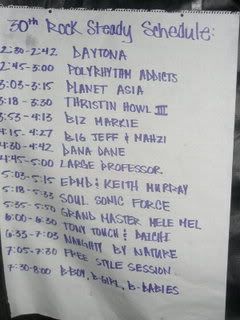 30th Rock Steady Schedule:
2:30-2:42 DAYTONA
2:45-3:00 POLYRHYTHM ADDICTS
3:03-3:15 PLANET ASIA
3:18-3:30 THRISTIN HOWL III
3:53-4:13 BIZ MARKIE
4:15-4:27 BIG JEFF & NAHZI
4:30-4:42 DANA DANE
4:45-5:00 LARGE PROFESSOR
5:03-5:15 EPMD & KEITH MURRAY
5:18-5:33 SOUL SONIC FORCE
5:35-5:50 GRAND MASTER MELE MEL
6:00-6:30 TONY TOUCH & DAICHI
6:33-7:03 NAUGHTY BY NATURE
7:05-7:30 FREE STYLE SESSION
7:30-8:00 B-BOY, B-GIRL, B-BABIES